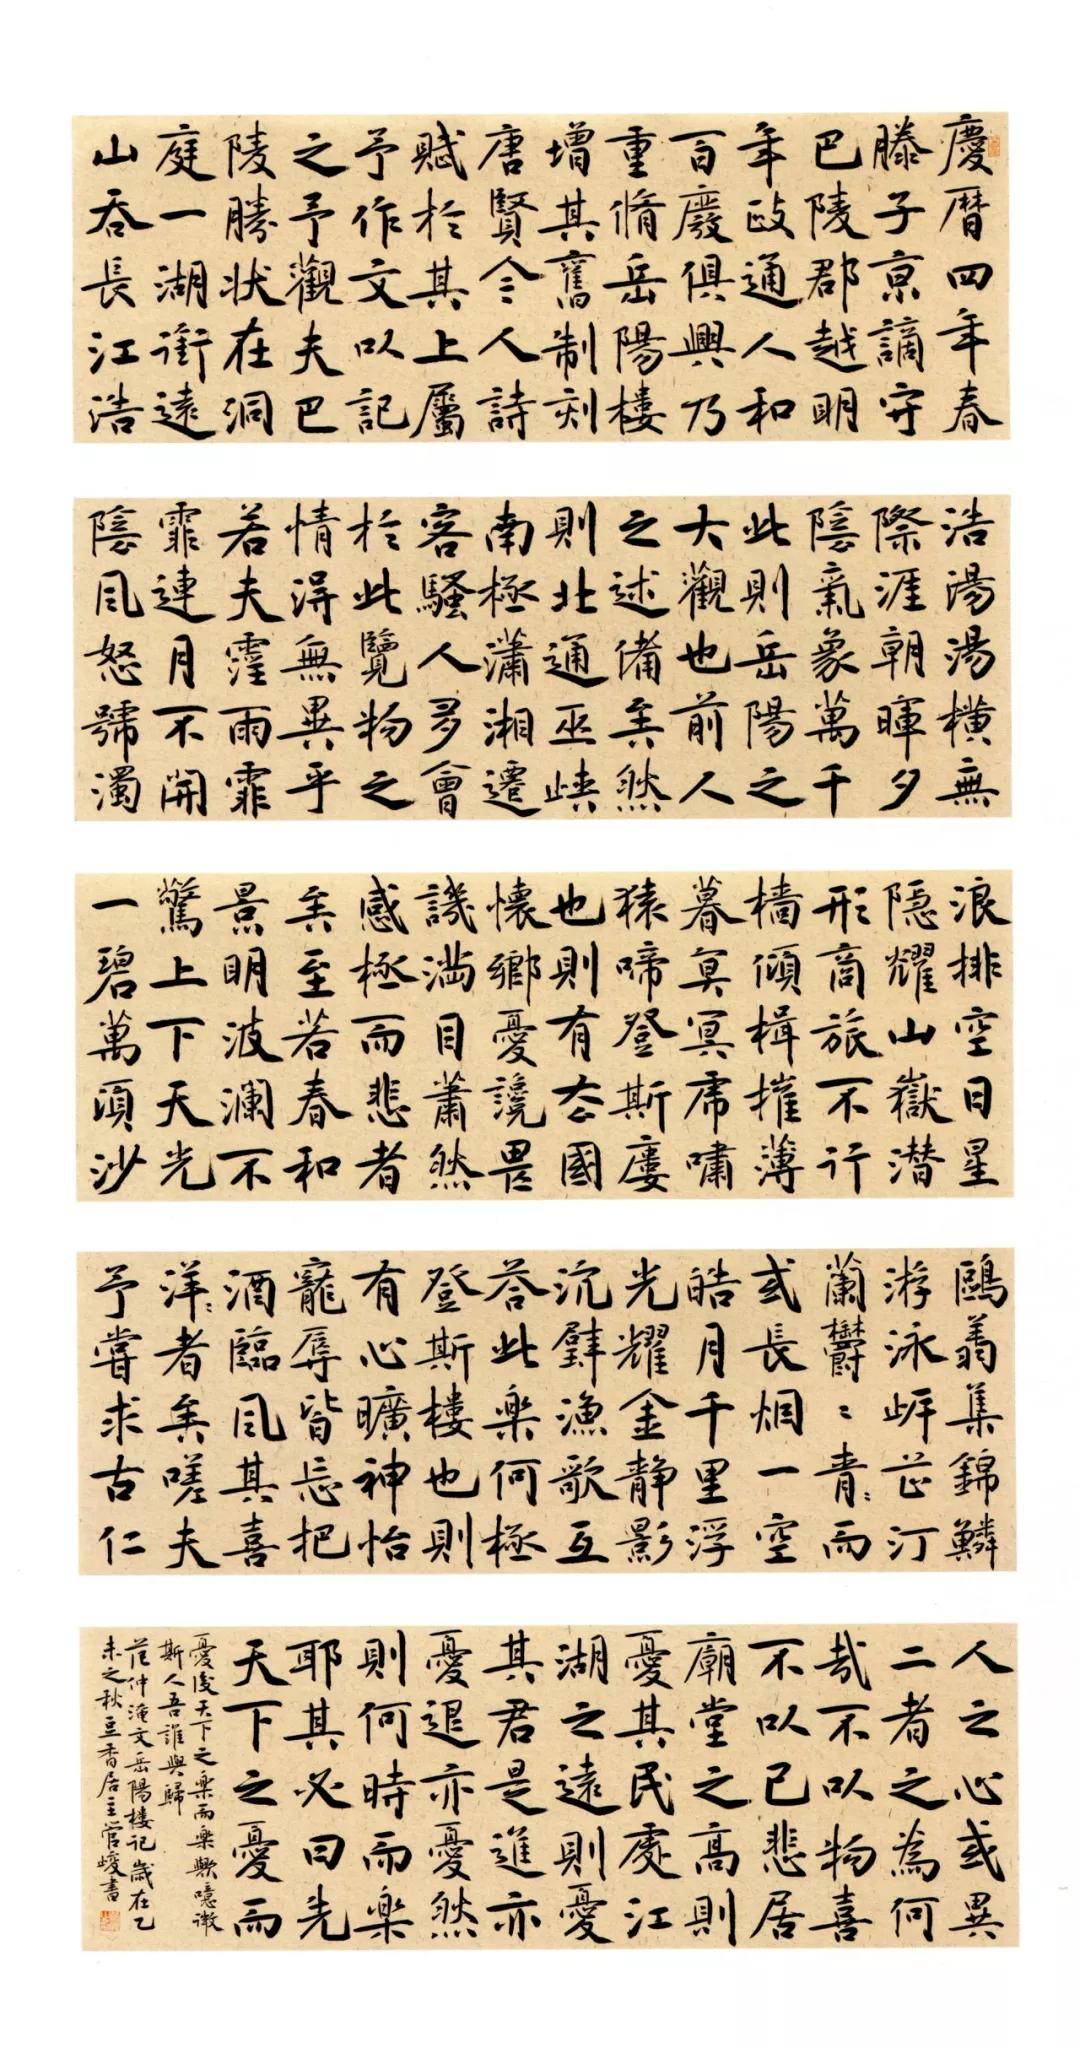 慶暦四年春
滕子京謫守
巴陵郡越明
年政通人和
百廢俱興乃
重脩岳陽樓
增其舊制刻
唐賢今人詩
賦於其上屬
予作文以記
之予觀夫巴
陵勝狀在洞
庭一湖銜遠
山吞長江浩
浩湯湯橫無
際涯朝暉夕
陰氣象萬千
此則岳陽之
大觀也前人
之述備矣然
則北通巫峽
南極瀟湘遷
客騷人多會
於此覽物之
情得無異乎
若夫霪雨霏
霏連月不開
陰風怒號濁
浪排空日星
隱耀山嶽潛
形商旅不行
檣傾楫摧薄
暮冥冥虎嘯
猿啼登斯樓
也則有去國
懷鄉憂讒畏
譏滿目蕭然
感極而悲者
矣至若春和
景明波瀾不
驚上下天光
一碧萬頃沙
鷗翔集錦鱗
游泳岸芷汀
蘭鬱々青々而
或長烟一空
皓月千里浮
光耀金靜影
沉璧漁歌互
答此樂何極
登斯樓也則
有心曠神怡
寵辱皆忘把
酒臨風其喜
洋々者矣嗟夫
予嘗求古仁
人之心或異
二者之為何
哉不以物喜
不以己悲居
廟堂之高則
憂其民處江
湖之遠則憂
其君是進亦
憂退亦憂然
則何時而樂
耶其必曰先
天下之憂而
憂後天下之樂而樂歟噫微
斯人吾誰與歸
范仲淹文岳陽樓記歲在乙
未之秋豆香居主管峻書